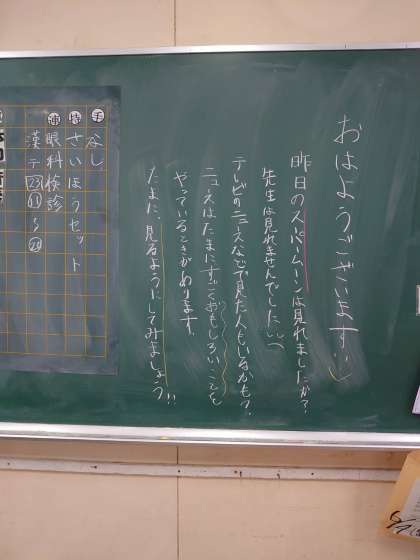 おはようございます
昨日のスーパームーンは見れましたか?
先生は見れませんでした
テレビのニュースなどで見た人もいるかも?
ニュースはたまにすごくおもしろいことを
やっているときがあります。
たまに、見るようにしてみましょう!!
手 なし
持 さいほうセット
連 眼科検診
漢テ23